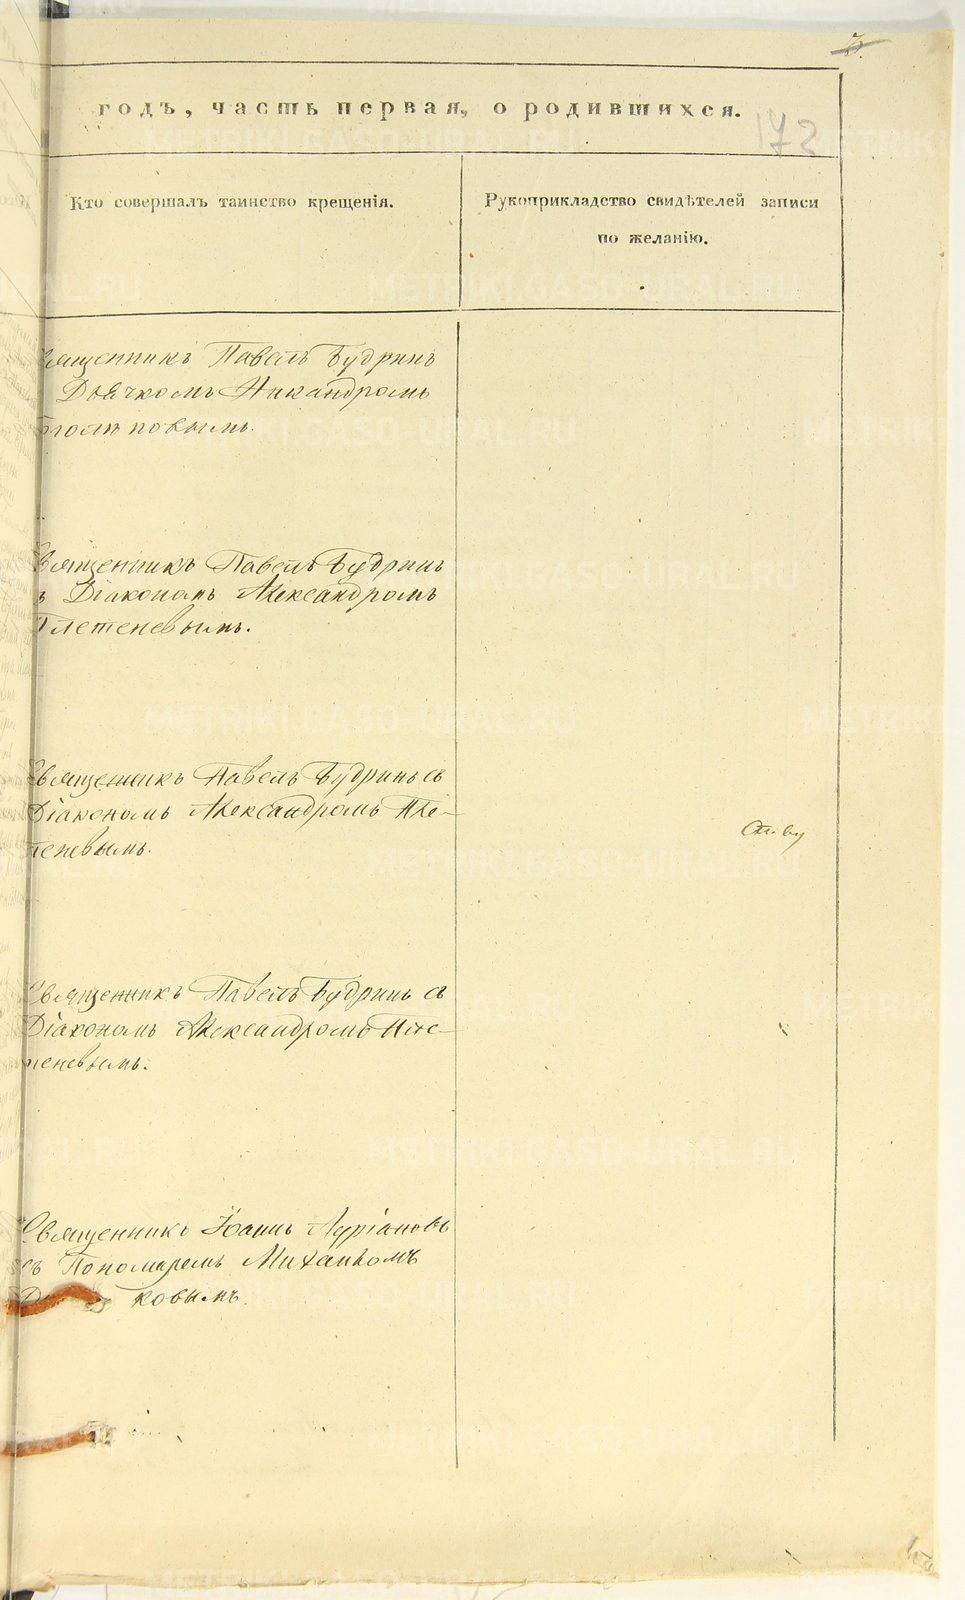 годъ, часть первая, о родившихся.
172
Кто совершалъ таинство крещенія.
Рукоприкладство свидѣтелей записи
по желанію.
Священникъ Павелъ Будринъ
Дьячкомъ Никандромъ
Священникъ Павелъ Будринъ
съ Діакономъ Александромъ
Плетеневымъ.
Священникъ Павелъ Будринъ съ
Діакономъ Александромъ Пле-
теневымъ.
Священникъ Павелъ Будринъ съ
Діакономъ Александромъ Пле-
теневымъ.
Священникъ Іоаннъ Адріановъ
съ Пономаремъ Михаиломъ
ковымъ.
METRIKI.GASO-URAL.RU